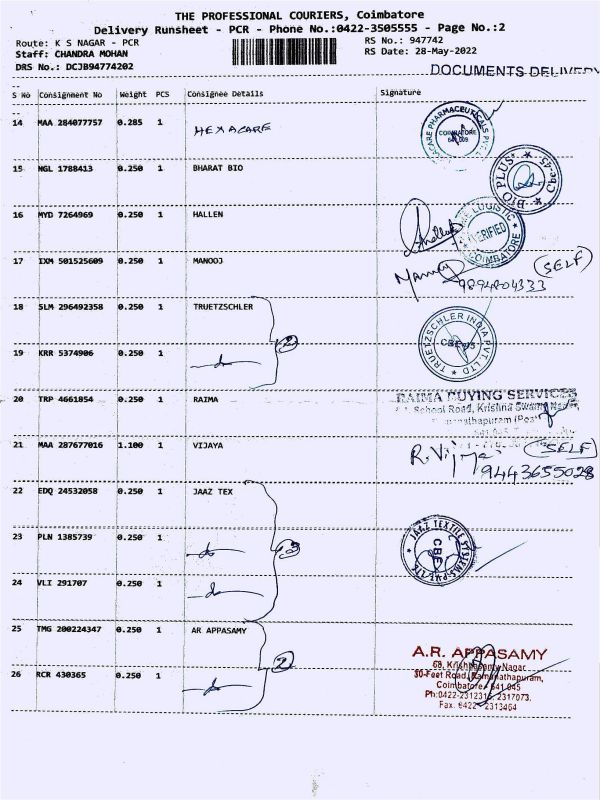 THE PROFESSIONAL COURIERS, Coimbatore
Delivery Runsheet - PCR - Phone No.:0422-3505555 - Page No.:2
Route: K S NAGAR - PCR RS No.: 947742
Staff: CHANDRA MOHAN RS Date: 28-May-2022
DRS No.: DCJB94774202
DOCUMENTS DELIVERY
S No Consignment No Weight PCS Consignee Details Signature
14 MAA 284077757 0.285 1 HEXACARE
COIMBATORE
15 NGL 1788413 0.250 1 BHARAT BIO
BIO PLUS
Cbe-45
16 MYD 7264969 0.250 1 HALLEN
LOGISTIC
VERIFIED
COIMBATORE
17 IXM 501525609 0.250 1 MANOOJ
(SELF)
9894804333
18 SLM 296492358 0.250 1 TRUETZSCHLER
2
TRUETZSCHLER INDIA PVT. LTD
19 KRR 5374906 0.250 1 -do-
20 TRP 4661854 0.250 1 RAIMA
RAIMA BUYING SERVICES
School Road, Krishna Swamy Nagar,
21 MAA 287677016 1.100 1 VIJAYA
R.Vijaya (SELF)
9443655028
22 EDQ 24532058 0.250 1 JAAZ TEX
23 PLN 1385739 0.250 1 -do-
3
JAAZ TEXTILE SYSTEMS PVT LTD
CBE
24 VLI 291707 0.250 1 -do-
25 TMG 200224347 0.250 1 AR APPASAMY
2
A.R. APPASAMY
68, Krishnasamy Nagar
26 RCR 430365 0.250 1 -do-
80-Feet Road, Ramanathapuram,
Coimbatore - 641 045
Ph:0422-2312316, 2317073,
Fax. 0422 - 2313464